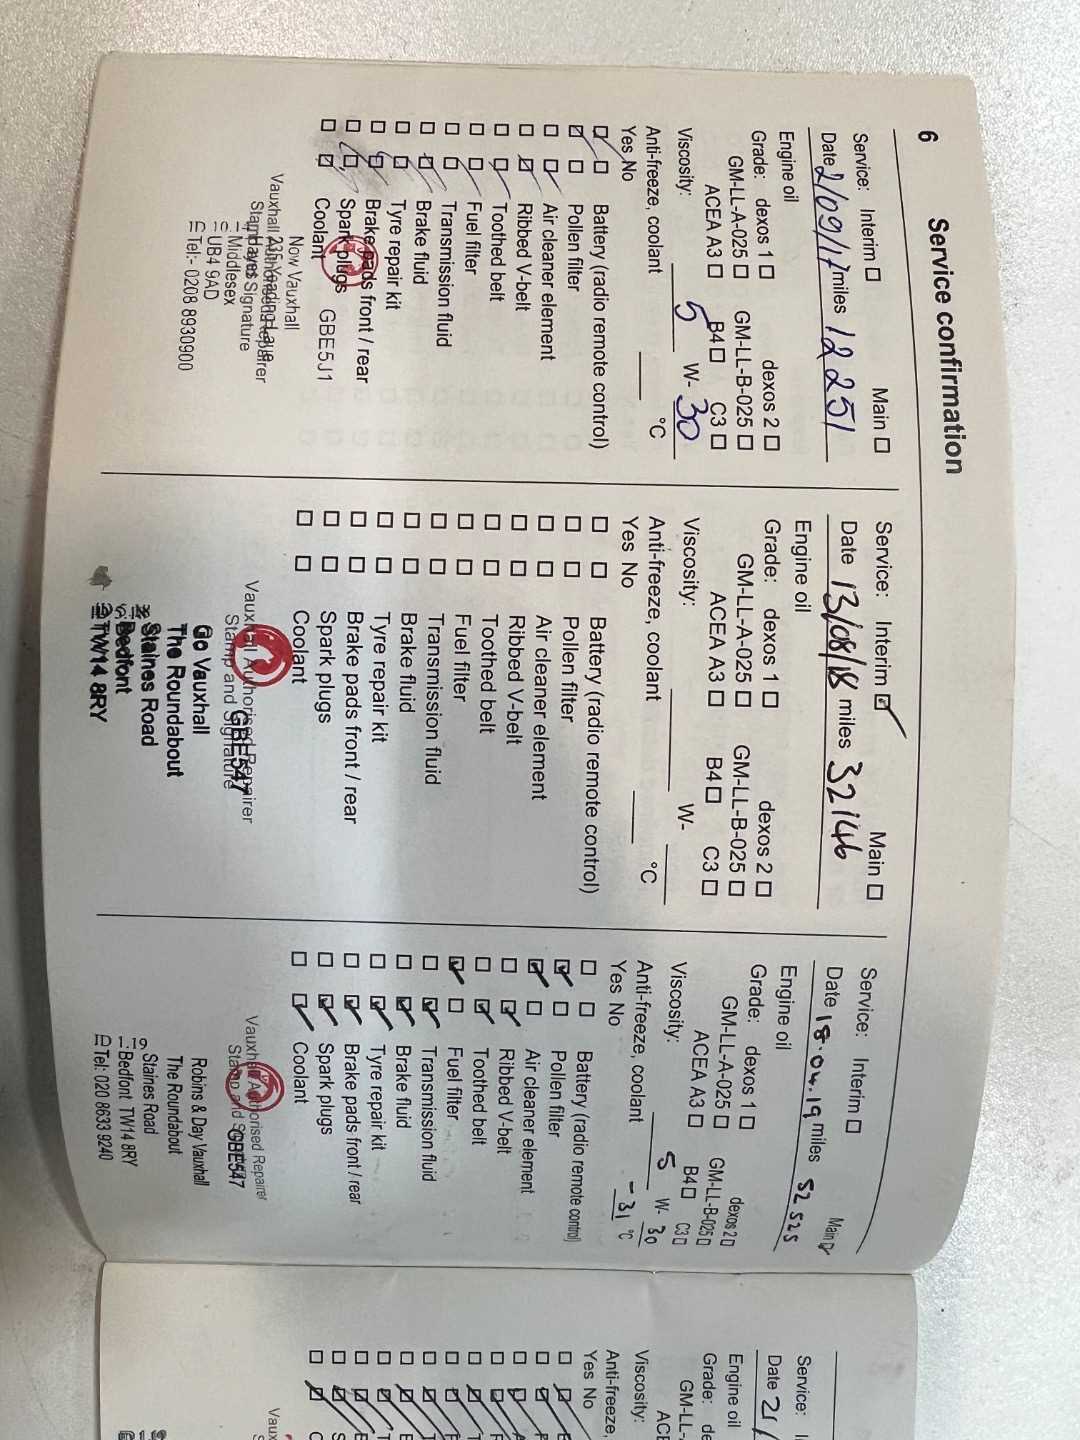 6
Service confirmation
Service: Interim ☐ Main ☐
Date 2/09/17 miles 12251
Engine oil
Grade: dexos 1 ☐ dexos 2 ☐
GM-LL-A-025 ☐ GM-LL-B-025 ☐
ACEA A3 ☐ B4 ☐ C3 ☐
Viscosity: 5 W- 30
Anti-freeze, coolant °C
Yes No
Battery (radio remote control)
Pollen filter
Air cleaner element
Ribbed V-belt
Toothed belt
Fuel filter
Transmission fluid
Brake fluid
Tyre repair kit
Brake pads front / rear
Spark plugs
Coolant
GBE5J1
Now Vauxhall
Vauxhall Authorised Repairer
235 Yeading Lane
Stamp and Signature
Hayes
Middlesex
UB4 9AD
Tel:- 0208 8930900
Service: Interim ☑ Main ☐
Date 13/08/18 miles 32146
Engine oil
Grade: dexos 1 ☐ dexos 2 ☐
GM-LL-A-025 ☐ GM-LL-B-025 ☐
ACEA A3 ☐ B4 ☐ C3 ☐
Viscosity: W-
Anti-freeze, coolant °C
Yes No
Battery (radio remote control)
Pollen filter
Air cleaner element
Ribbed V-belt
Toothed belt
Fuel filter
Transmission fluid
Brake fluid
Tyre repair kit
Brake pads front / rear
Spark plugs
Coolant
Vauxhall Authorised Repairer
GBE547
Stamp and Signature
Go Vauxhall
The Roundabout
Staines Road
Bedfont
TW14 8RY
Service: Interim ☐ Main ☑
Date 18.04.19 miles 52525
Engine oil
Grade: dexos 1 ☐ dexos 2 ☐
GM-LL-A-025 ☐ GM-LL-B-025 ☐
ACEA A3 ☐ B4 ☐ C3 ☐
Viscosity: 5 W- 30
Anti-freeze, coolant -31 °C
Yes No
Battery (radio remote control)
Pollen filter
Air cleaner element
Ribbed V-belt
Toothed belt
Fuel filter
Transmission fluid
Brake fluid
Tyre repair kit
Brake pads front / rear
Spark plugs
Coolant
Vauxhall Authorised Repairer
Stamp and GBE547
Robins & Day Vauxhall
The Roundabout
Staines Road
Bedfont TW14 8RY
Tel: 020 8633 9240
Service:
Date 21/
Engine oil
Grade: de
GM-LL-
ACE
Viscosity:
Anti-freeze,
Yes No
Vaux